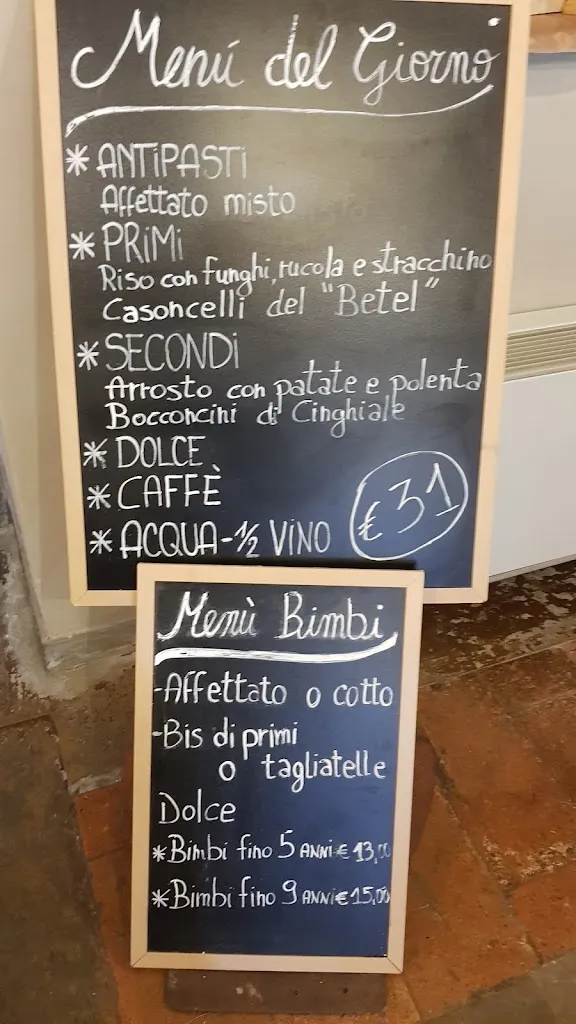 Menú del Giorno
* ANTIPASTI
Affettato misto
* PRIMI
Riso con funghi, rucola e stracchino
Casoncelli del "Betel"
* SECONDI
Arrosto con patate e polenta
Bocconcini di Cinghiale
* DOLCE
* CAFFÈ
* ACQUA-1/2 VINO
€ 31
Menù Bimbi
-Affettato o cotto
-Bis di primi
o tagliatelle
Dolce
*Bimbi fino 5 ANNI € 13,00
*Bimbi fino 9 ANNI € 15,00